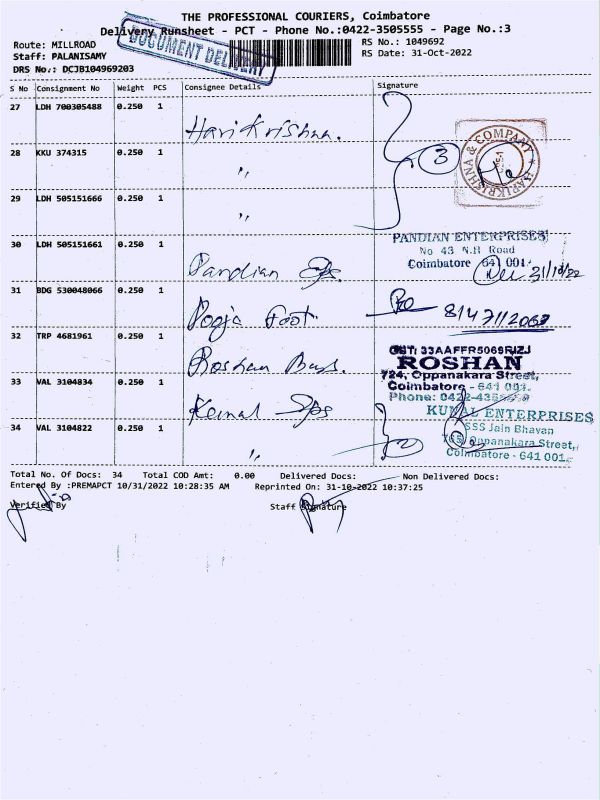 THE PROFESSIONAL COURIERS, Coimbatore
Delivery Runsheet - PCT - Phone No.:0422-3505555 - Page No.:3
DOCUMENT DELIVERY
Route: MILLROAD RS No.: 1049692
Staff: PALANISAMY RS Date: 31-Oct-2022
DRS No.: DCJB104969203
S No Consignment No Weight PCS Consignee Details Signature
27 LDH 700305488 0.250 1 Hari Krishna.
28 KKU 374315 0.250 1 〃 3
HARIKRISHNA & COMPANY
29 LDH 505151666 0.250 1 〃
30 LDH 505151661 0.250 1 Pandian
PANDIAN ENTERPRISES
No 43 N.H Road
Coimbatore 641 001. 31/10/22
31 BDG 530048066 0.250 1 Pooja Foot
32 TRP 4681961 0.250 1 Roshan Bags.
ROSHAN
724, Oppanakara Street,
Coimbatore - 641 001.
33 VAL 3104834 0.250 1 Kunal
34 VAL 3104822 0.250 1 〃 2
KUNAL ENTERPRISES
SSS Jain Bhavan
Oppanakara Street,
Coimbatore - 641 001.
Total No. Of Docs: 34 Total COD Amt: 0.00 Delivered Docs: Non Delivered Docs:
Entered By :PREMAPCT 10/31/2022 10:28:35 AM Reprinted On: 31-10-2022 10:37:25
Verified By Staff Signature